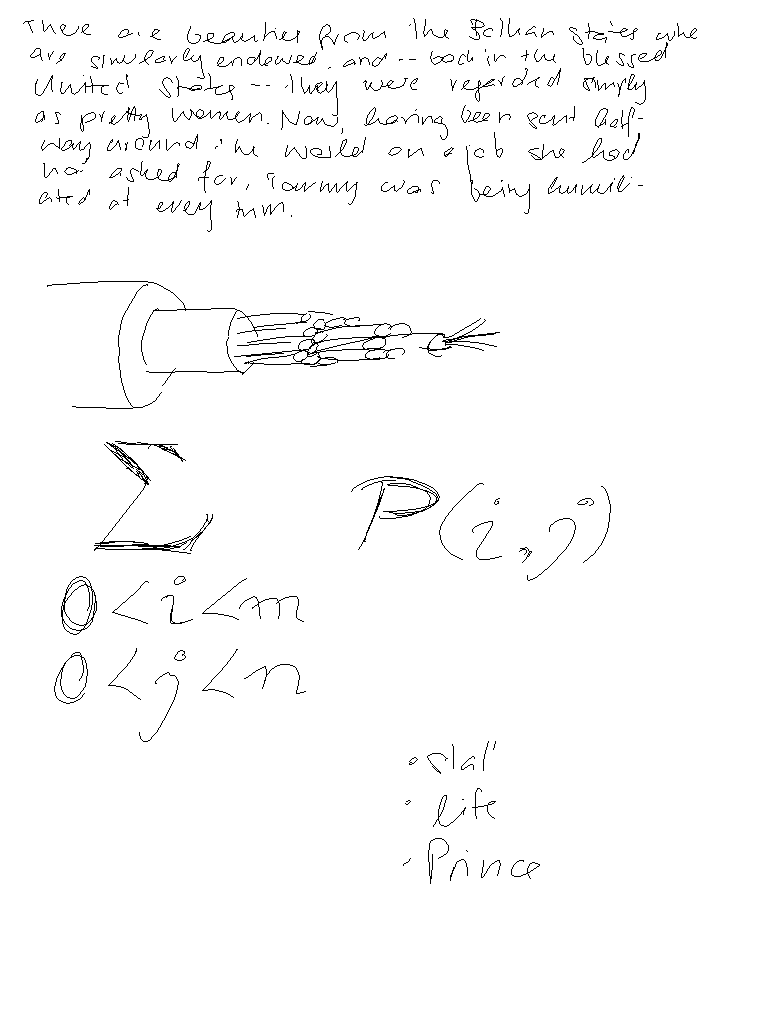 There are beauties from the Balkan states who
are simularly endowed, and -- back in the blessed
United States -- they were regarded simply
as pretty women. Now, having been sent half-
way around the world on a job she had
not asked for, Tammy was being humili-
ated at every turn.
Σ P(i,j)
0<i<m
0<j<n
• life
• Prince